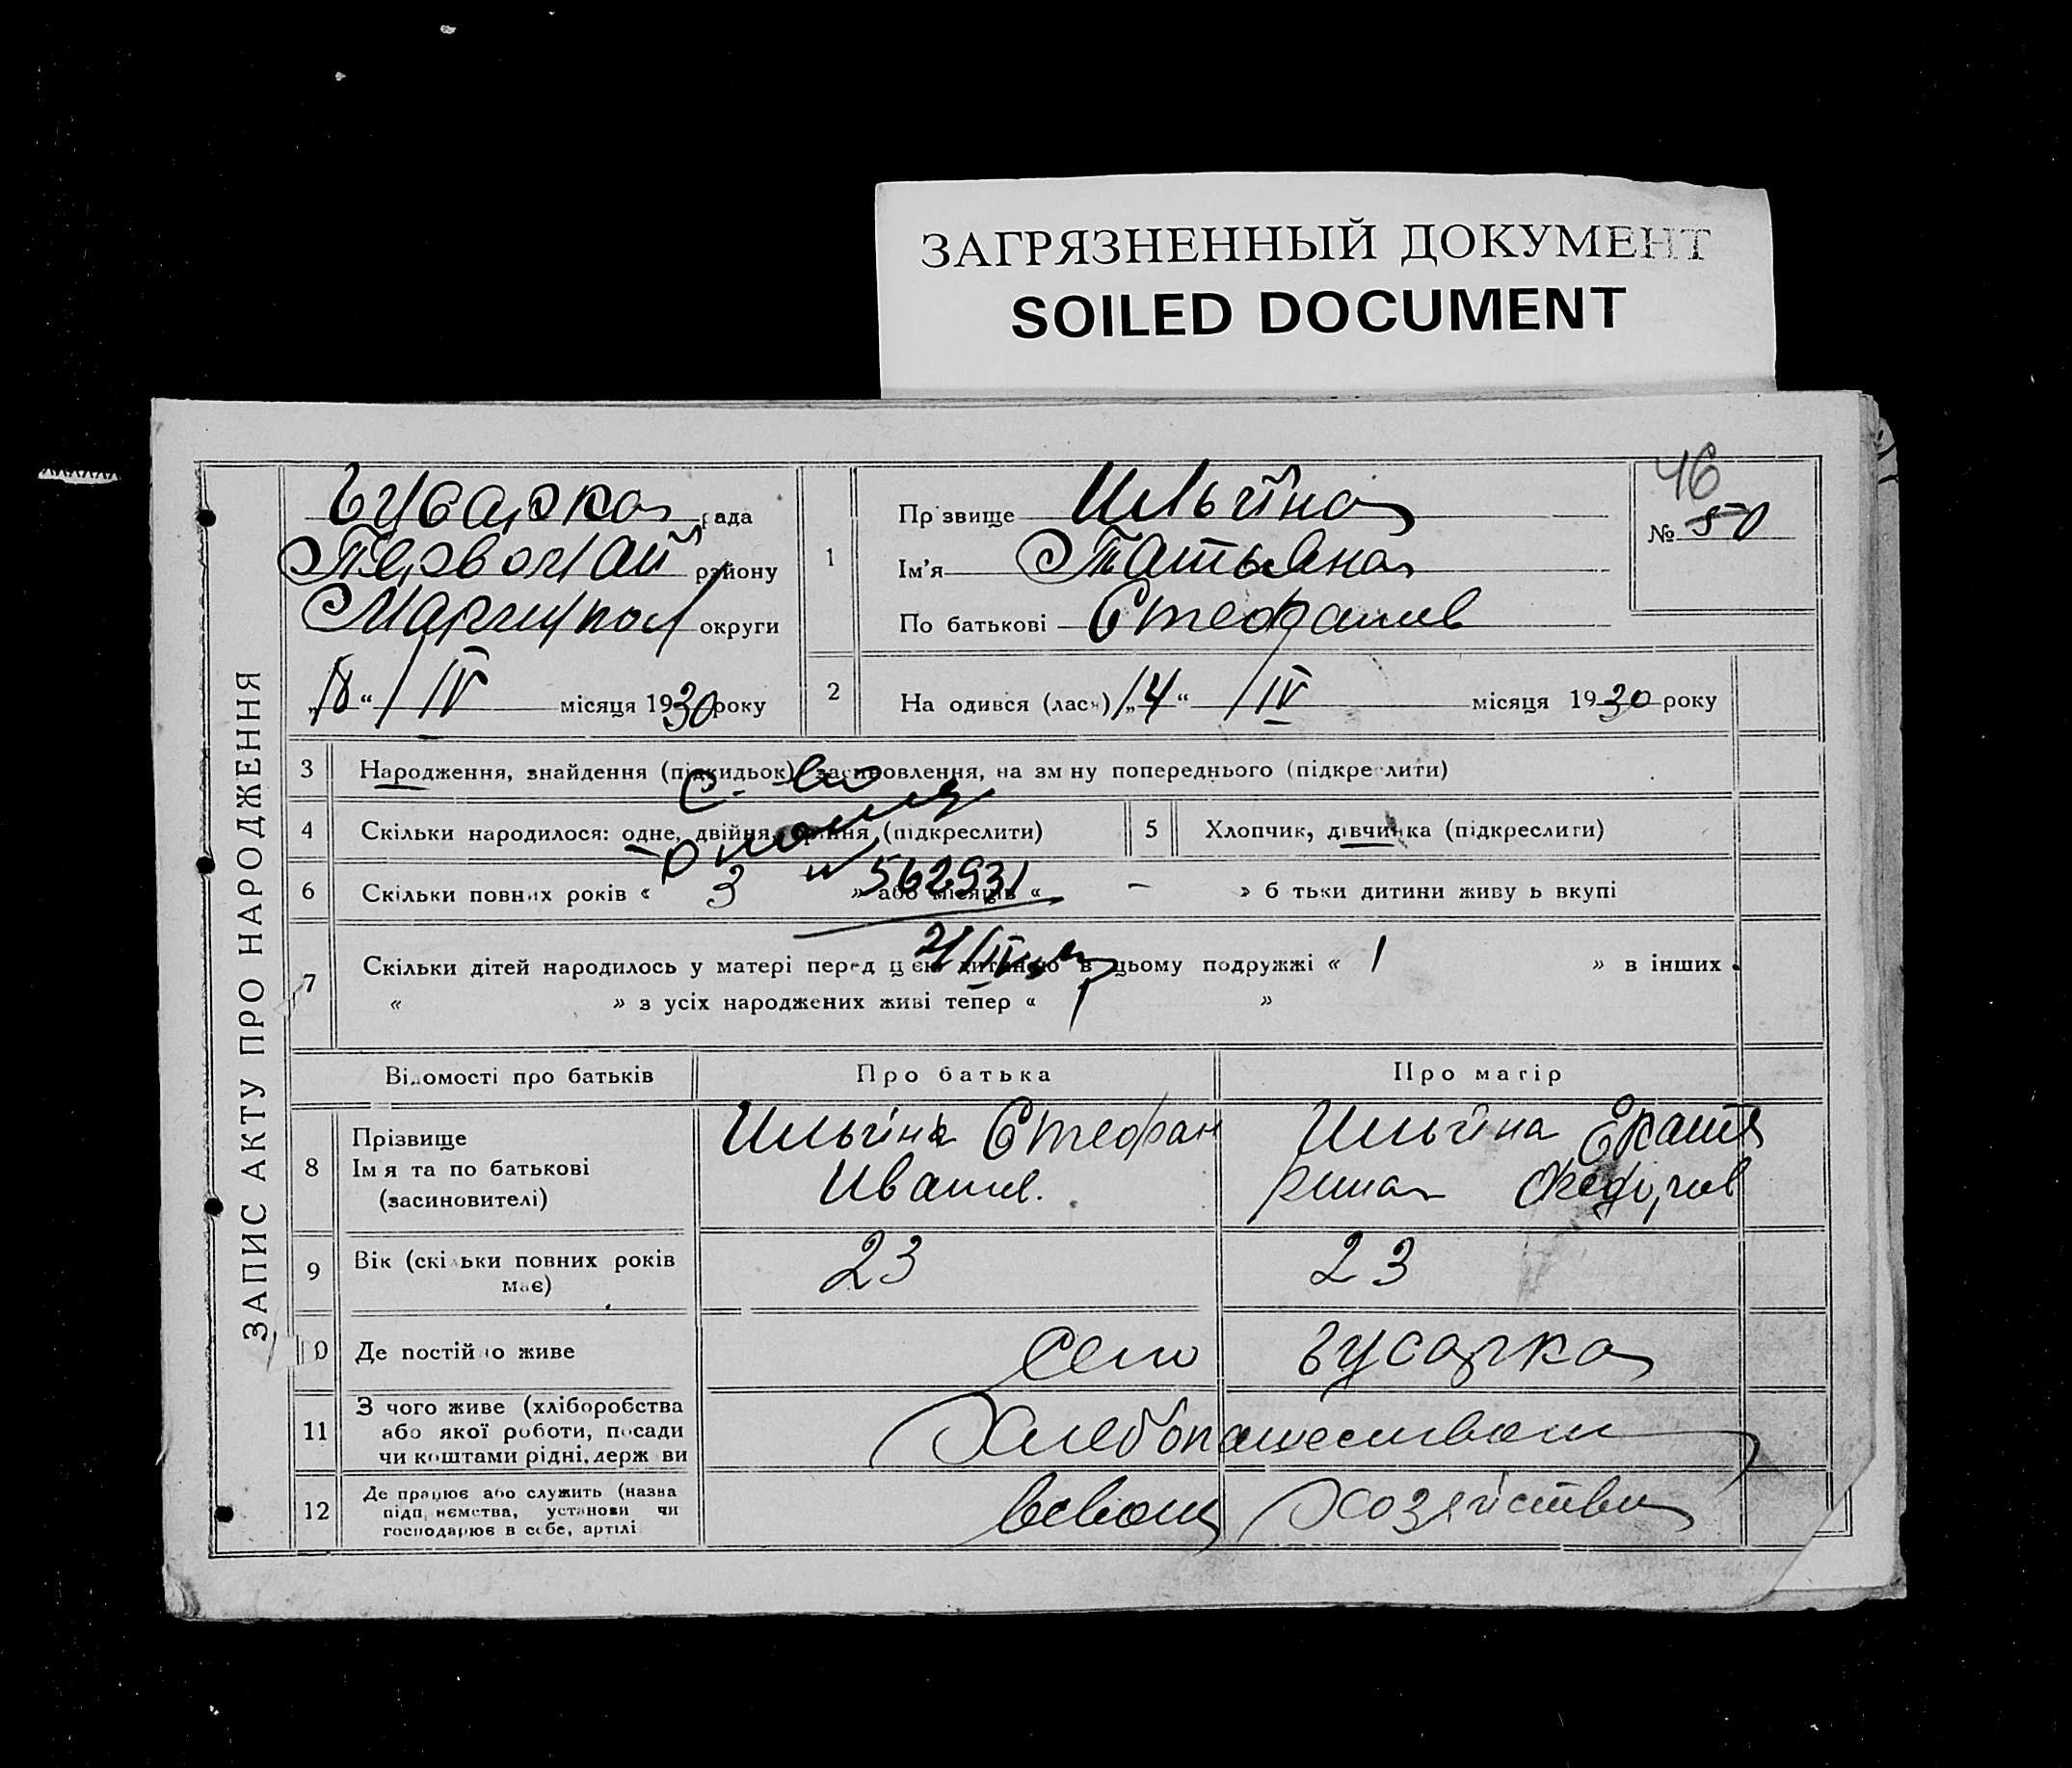 ЗАГРЯЗНЕННЫЙ ДОКУМЕНТ
SOILED DOCUMENT
ЗАПИС АКТУ ПРО НАРОДЖЕННЯ
Гусарка рада
Первомай району
Мариупол округи
„18“ / IV місяця 1930 року
46
№ 50
1 Прізвище Ильйна
Ім'я Татьяна
По батькові Стефанов
2 Народився (лась) „14“ / IV місяця 1930 року
3 Народження, знайдення (підкидьок), засиновлення, на зміну попереднього (підкреслити)
С-во
4 Скільки народилося: одне, двійня, трійня (підкреслити)
5 Хлопчик, дівчинка (підкреслити)
6 Скільки повних років « 3 » або місяців « – » батьки дитини живуть вкупі
№ 562931
21/IV
7 Скільки дітей народилось у матері перед цією дитиною в цьому подружжі « 1 » в інших
« » з усіх народжених живі тепер « »
Відомості про батьків Про батька Про матір
8 Прізвище
Ім'я та по батькові
(засиновителі)
Ильйна Стефан
Иванов.
Ильйна Екате
рина Федоров
9 Вік (скільки повних років
має)
23 23
10 Де постійно живе село Гусарка
11 З чого живе (хліборобства
або якої роботи, посади
чи коштами рідні, держави
Хлебопашеством
12 Де працює або служить (назва
підприємства, установи чи
господарює в себе, артілі
всвоем хозяйстви